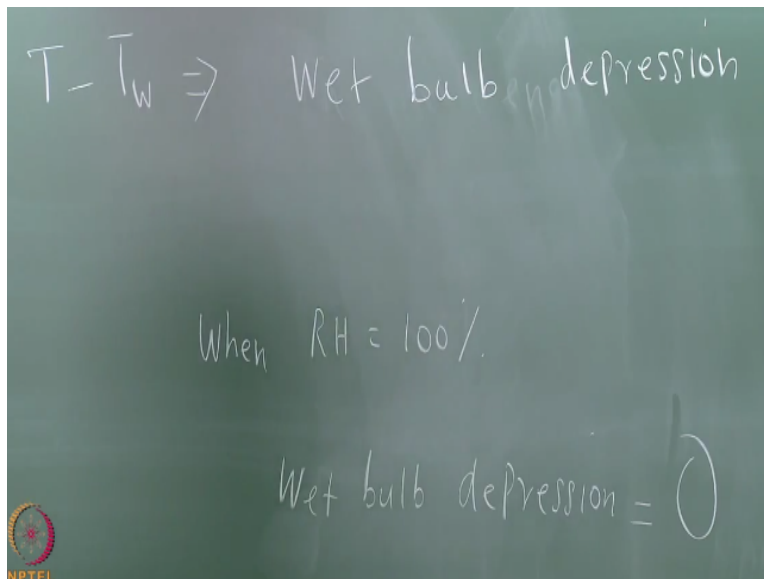 T - T_w ⇒ Wet bulb depression
When RH = 100%.
Wet bulb depression = 0
NPTEL